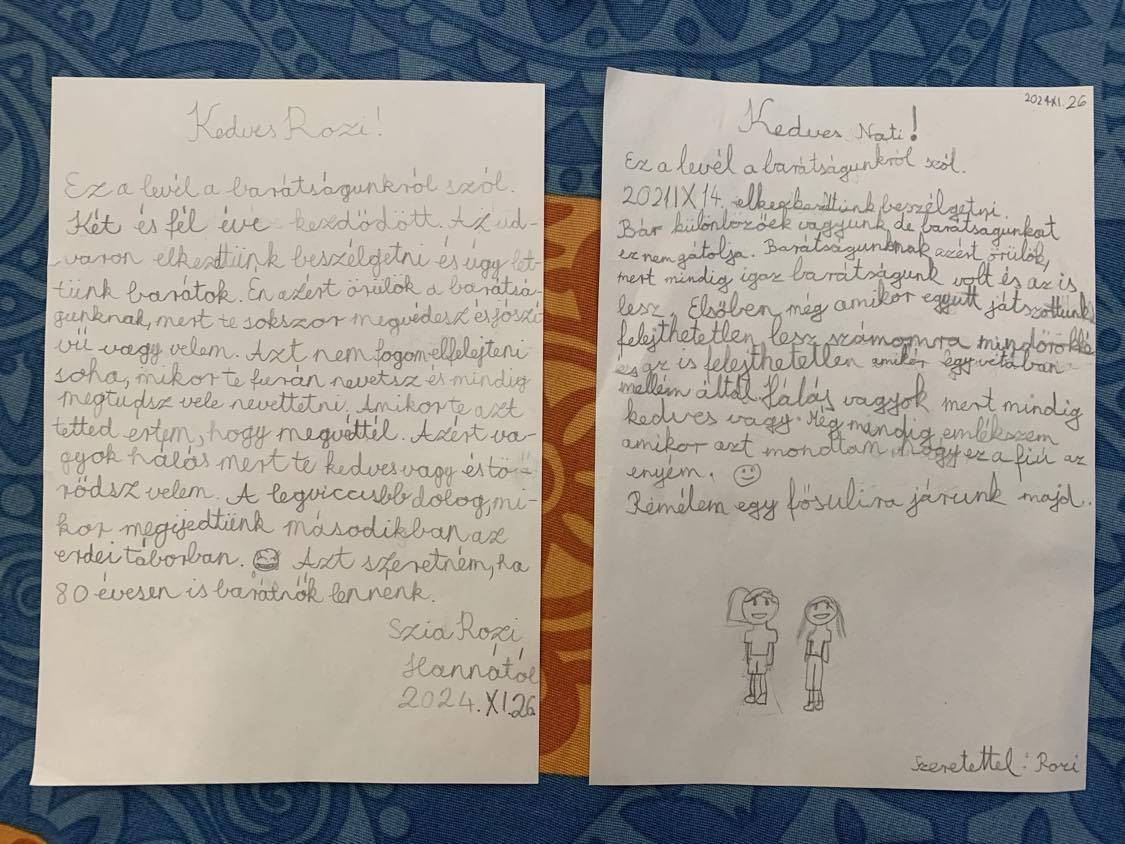 Kedves Rozi!
Ez a levél a barátságunkról szól.
Két és fél éve kezdődött. Az ud-
varon elkezdtünk beszélgetni és úgy let-
tünk barátok. Én azért örülök a barátsá-
gunknak, mert te sokszor megvédesz és jószí
vű vagy velem. Azt nem fogom elfelejteni
soha, mikor te furán nevetsz és mindig
megtudsz vele nevettetni. Amikor te azt
tetted értem, hogy megvéttél. Azért va-
gyok hálás mert te kedves vagy és tö-
rődsz velem. A legviccesebb dolog, mi-
kor megijedtünk másodikban az
erdei táborban. Azt szeretném, ha
80 évesen is barátnők lennénk.
Szia Rozi
Hannától
2024.XI.26
2024XI.26
Kedves Nati!
Ez a levél a barátságunkról szól.
2021IX14. elkezdtünk beszélgetni.
Bár különbözőek vagyunk de barátságunkat
ez nem gátolja. Barátságunknak azért örülök,
mert mindig igaz barátságunk volt és az is
lesz. Elsőben még amikor együtt játszottunk
felejthetetlen lesz számomra mindörökké
és az is felejthetetlen amikor egy vitában
mellém álltál. Hálás vagyok mert mindig
kedves vagy. Még mindig emlékszem
amikor azt mondtam, hogy ez a fiú az
enyém.
Rémélem egy fősulira járunk majd.
Szeretettel: Rozi